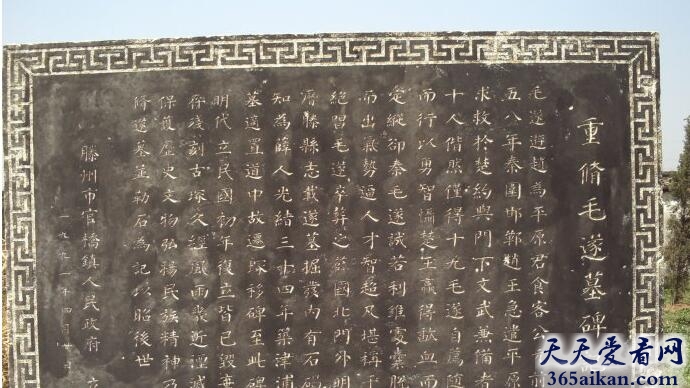 重脩毛遂墓碑
毛遂遊趙為平原君食客公前
五八年秦圍邯鄲趙王急遣平原
求救於楚約與門下文武兼備者
十人偕然僅得十九毛遂自薦随
而行以勇智懾楚王贏得歃血而
定縱却秦毛遂誠若利錐處囊脱
而出氣勢過人才智超凡堪稱
絕習毛遂卒葬之薛國北門外明
滕縣志載遂墓掘發内有石
知為薛人光緒三十四年築津浦
墓適置道中故遷塚移碑至此碑
明代立民國初年復立皆已毀
存殘刻古塚久經風雨幾近湮滅
保護歷史文物弘揚民族精神乃
脩遂墓並勒石為記以昭後世
滕州市官橋鎮人民政府 立
一九九一年四月廿日
天天爱看网
365aikan.com